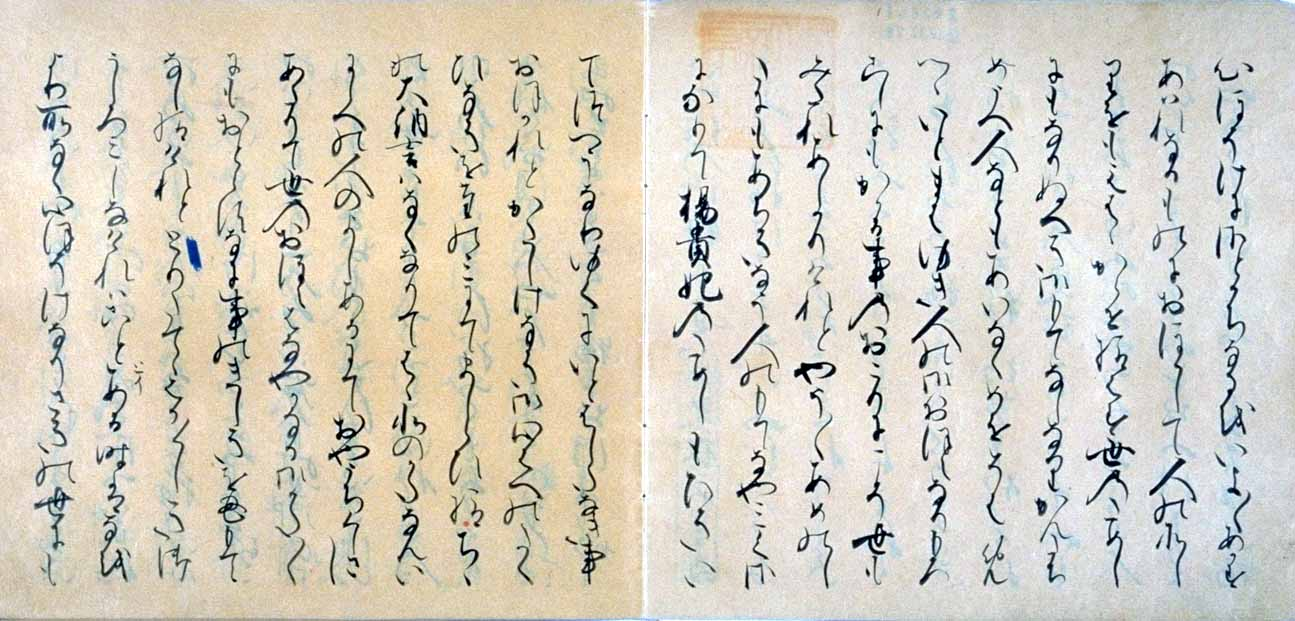 心ほそけにさとかちなるをいよ〱あかす
あはれなるものにおほして人のそし
りをもえはゝからせ給はす世のためし
にもなりぬへき御もてなしなりかんたち
めうへ人なともあいなくめをそはめ
つゝいとまはゆき人の御おほえなりもろ
こしにもかゝる事のおこりにこそ世も
みたれあしかりけれとやう〱あめのし
たにもあちきなう人のもてなやみくさ
になりて楊貴妃のためしもひきい
てつへうなりゆくにいとはしたなき事
おほかれとかたしけなき御心はへのたく
ひなきをたのみにてましらひ給ちゝ
の大納言はなくなりてはゝ北のかたなんい
にしへの人のよしあるにておやうちくし
あたりて世のおほえはなやかなる御かた〱
にもおとらすなに事のきしきをももて
なし給けれととりたてゝはか〱しき御
うしろみしなけれはことある時はなを
より所なく心ほそけなりさきの世にも